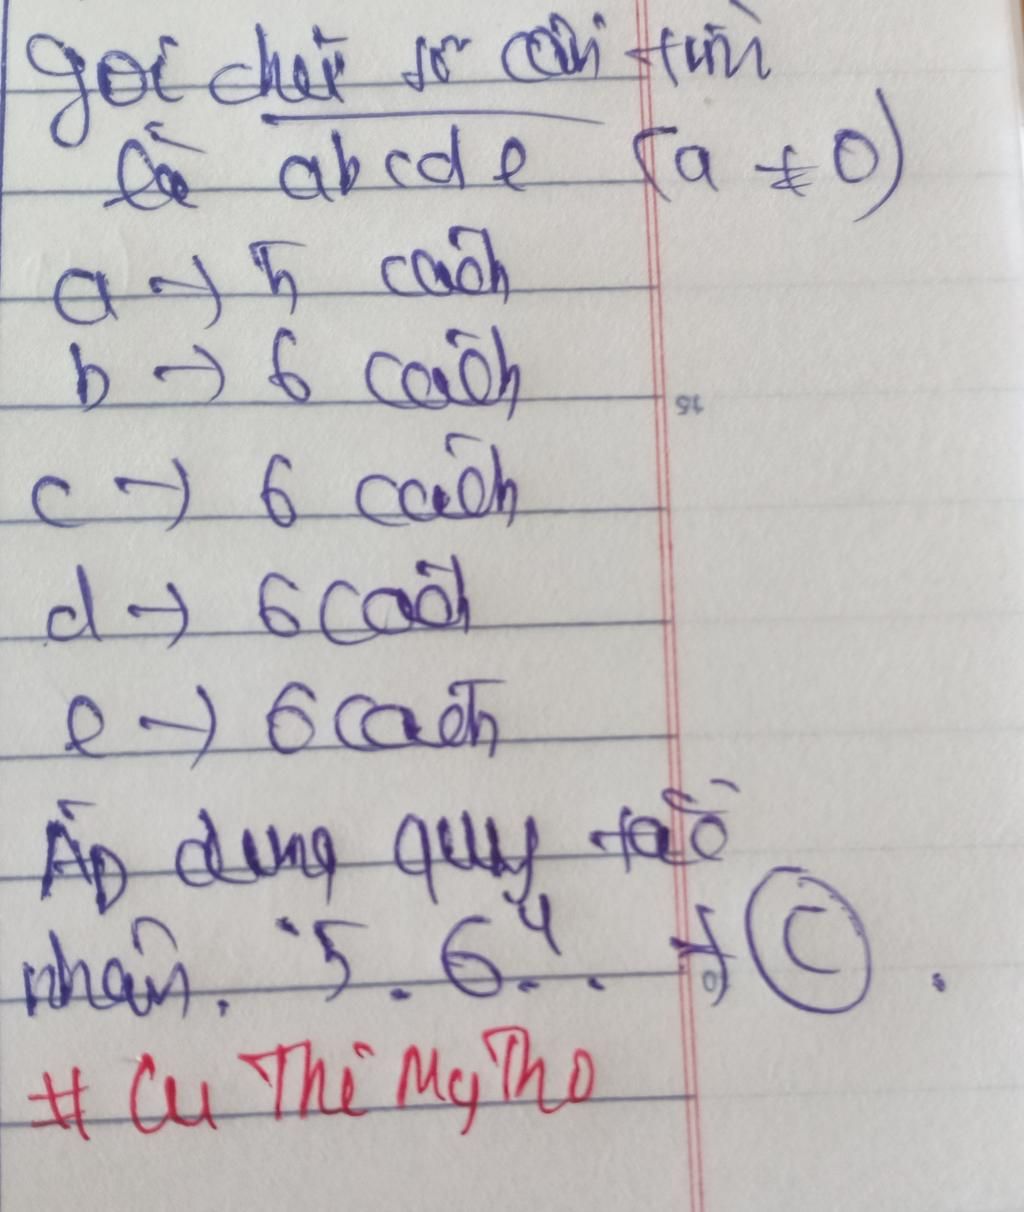 gọi chữ số cần tìm
là abcde (a ≠ 0)
a → 5 cách
b → 6 cách
c → 6 cách
d → 6 cách
e → 6 cách
Áp dụng quy tắc
nhân. 5 . 6⁴ . . → C .
# Cu Thi My Tho